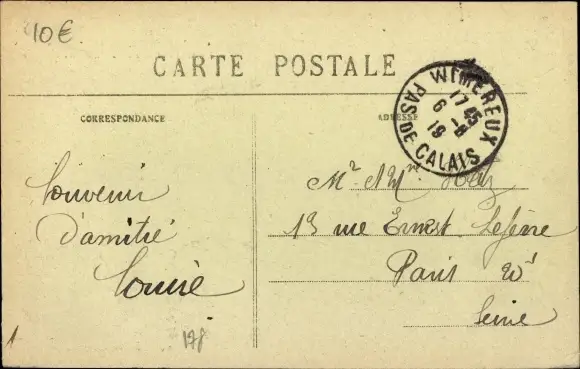 10€
CARTE POSTALE
CORRESPONDANCE
ADRESSE
WIMEREUX
17 45
6 -8
19
PAS DE CALAIS
Souvenir
D'amitié
Louise
Mr et Mme
13 rue Ernest Lefèvre
Paris
Seine
178
1